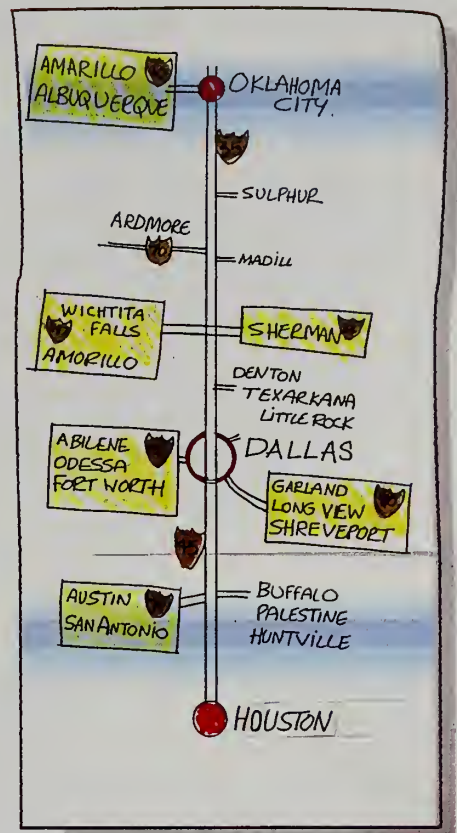 AMARILLO
ALBUQUERQUE
OKLAHOMA
CITY.
35
SULPHUR
ARDMORE
70
MADILL
WICHTITA
FALLS
AMORILLO
SHERMAN
DENTON
TEXARKANA
LITTLE ROCK
ABILENE
ODESSA
FORT WORTH
DALLAS
GARLAND
LONG VIEW
SHREVEPORT
45
AUSTIN
SAN ANTONIO
BUFFALO
PALESTINE
HUNTVILLE
HOUSTON